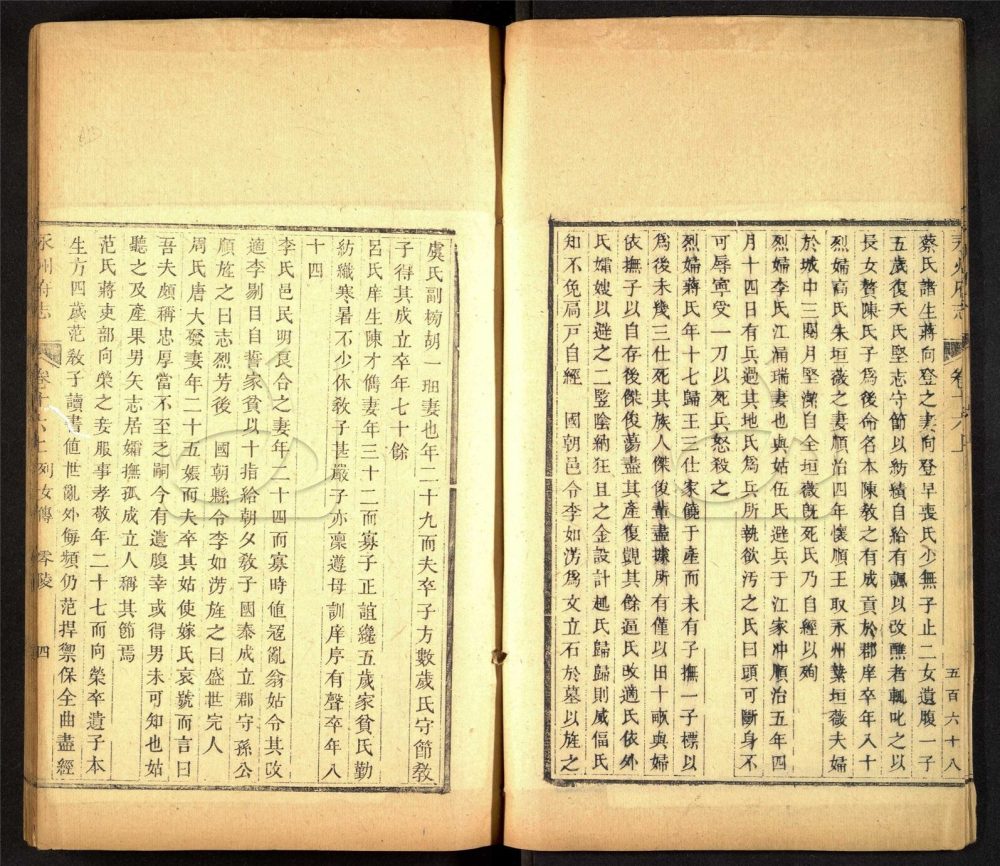 永州府志
卷十六上
五百六十八
蔡氏諸生蔣向登之妻向登早喪氏少無子止二女遺腹一子
五歲復夭氏堅志守節以紡績自給有諷以改醮者輒叱之以
長女贅陳氏子為後命名本陳敎之有成貢於郡庠卒年八十
烈婦高氏朱垣薇之妻順治四年懷順王取永州葉垣薇夫婦
於城中三閱月堅潔自全垣薇旣死氏乃自經以殉
烈婦李氏江湧瑞妻也與姑伍氏避兵于江家冲順治五年四
月十四日有兵過其地氏為兵所執欲汚之氏曰頭可斷身不
可辱寧受一刀以死兵怒殺之
烈婦蔣氏年十七歸王三仕家饒于產而未有子撫一子標以
為後未幾三仕死其族人傑俊輩盡據所有僅以田十畝與婦
依撫子以自存後傑俊蕩盡其產復覬其餘逼氏改適氏依外
氏孀嫂以避之二豎陰納狂且之金設計趣氏歸歸則威偪氏
知不免扃戸自經 國朝邑令李如淓為文立石於墓以旌之
虞氏副榜胡一珊妻也年二十九而夫卒子方數歲氏守節敎
子得其成立卒年七十餘
呂氏庠生陳才儁妻年三十二而寡子正誼纔五歲家貧氏勤
紡織寒暑不少休敎子甚嚴子亦稟遵母訓庠序有聲卒年八
十四
李氏邑民明艮合之妻年二十四而寡時値寇亂翁姑令其改
適李剔目自誓家貧以十指給朝夕敎子國泰成立郡守孫公
顏旌之曰志烈芳後 國朝縣令李如淓旌之曰盛世完人
周氏唐大發妻年二十五娠而夫卒其姑使嫁氏哀號而言曰
吾夫頗稱忠厚當不至乏嗣今有遺腹幸或得男未可知也姑
聽之及產果男矢志居孀撫孤成立人稱其節焉
范氏蔣吏部向榮之妾服事孝敬年二十七而向榮卒遺子本
生方四歲范敎子讀書値世亂外侮頻仍范捍禦保全曲盡經
永州府志
卷十六上 列女傳 零陵
四